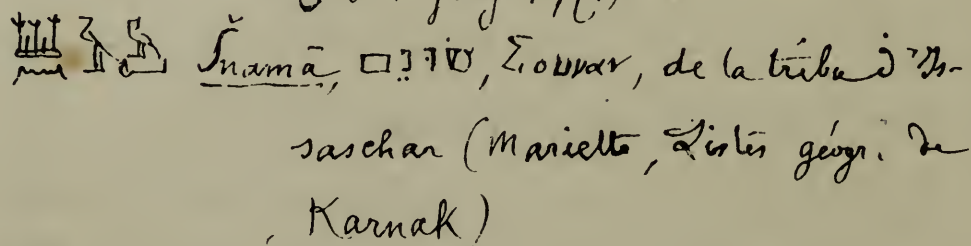 Šnamā, שׁוּנֵם, Σουναν, de la tribu d'Is-
saschar (Mariette, Listes géogr. de
Karnak)